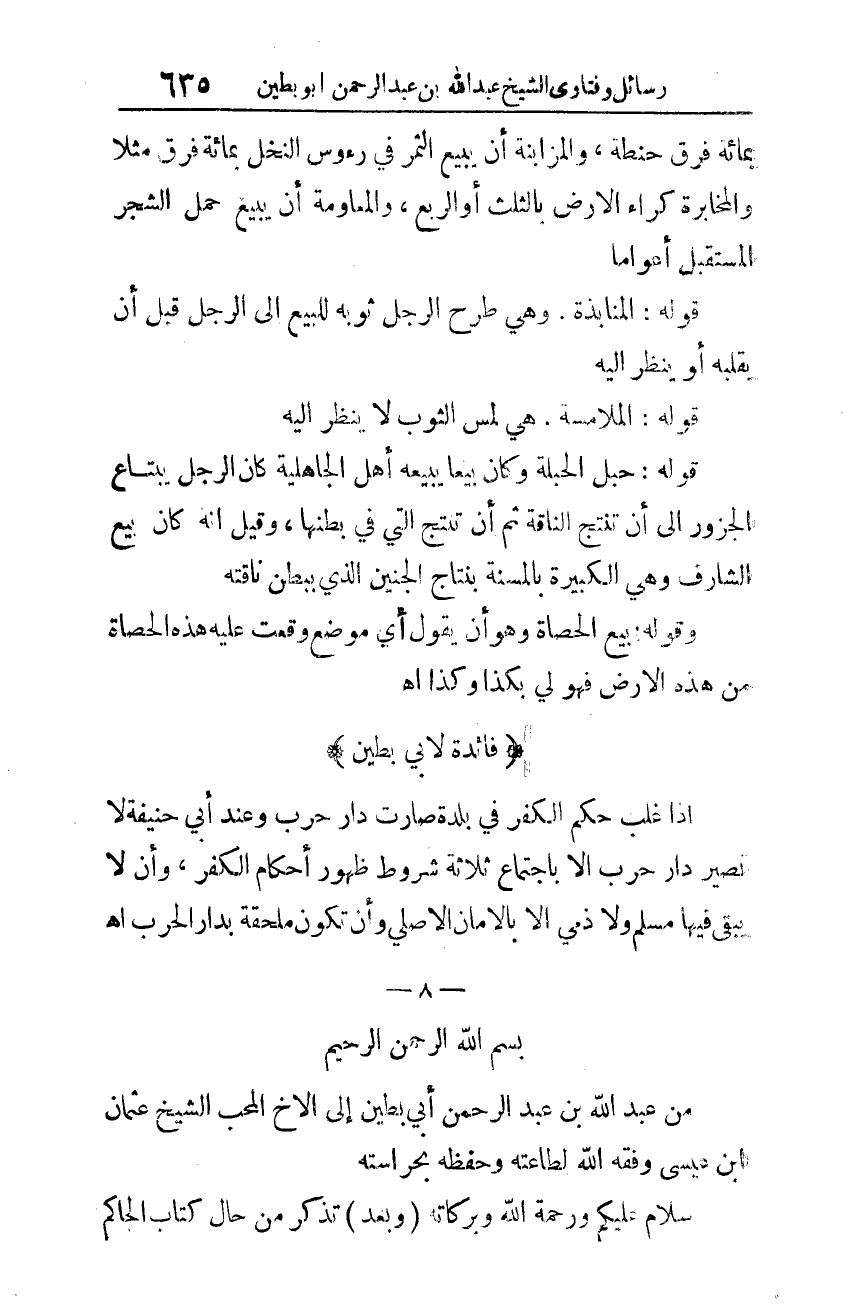 رسائل وفتاوى الشيخ عبدالله بن عبدالرحمن ابو بطين ٦٣٥
بمائة فرق حنطة ، والمزابنة أن يبيع الثمر في رءوس النخل بمائة فرق مثلا
والمخابرة كراء الارض بالثلث أوالربع ، والمعاومة أن يبيع حمل الشجر
المستقبل أعواما
قوله : المنابذة . وهي طرح الرجل ثوبه للبيع الى الرجل قبل أن
يقلبه أو ينظر اليه
قوله : الملامسة . هي لمس الثوب لا ينظر اليه
قوله : حبل الحبلة وكان بيعا يبيعه أهل الجاهلية كان الرجل يبتاع
الجزور الى أن تنتج الناقة ثم أن تنتج التي في بطنها ، وقيل انه كان بيع
الشارف وهي الكبيرة بالمسنة بنتاج الجنين الذي ببطن ناقته
وقوله: بيع الحصاة وهو أن يقول أي موضع وقعت عليه هذه الحصاة
من هذه الارض فهو لي بكذا وكذا اه
﴿ فائدة لابي بطين ﴾
اذا غلب حكم الكفر في بلدة صارت دار حرب وعند أبي حنيفة لا
تصير دار حرب الا باجتماع ثلاثة شروط ظهور أحكام الكفر ، وأن لا
يبقى فيها مسلم ولا ذمي الا بالامان الاصلي وأن تكون ملحقة بدار الحرب اه
— ٨ —
بسم الله الرحمن الرحيم
من عبد الله بن عبد الرحمن أبي بطين إلى الاخ المحب الشيخ عثمان
ابن عيسى وفقه الله لطاعته وحفظه بحراسته
سلام عليكم ورحمة الله وبركاته ( وبعد ) تذكر من حال كتاب الحاكم